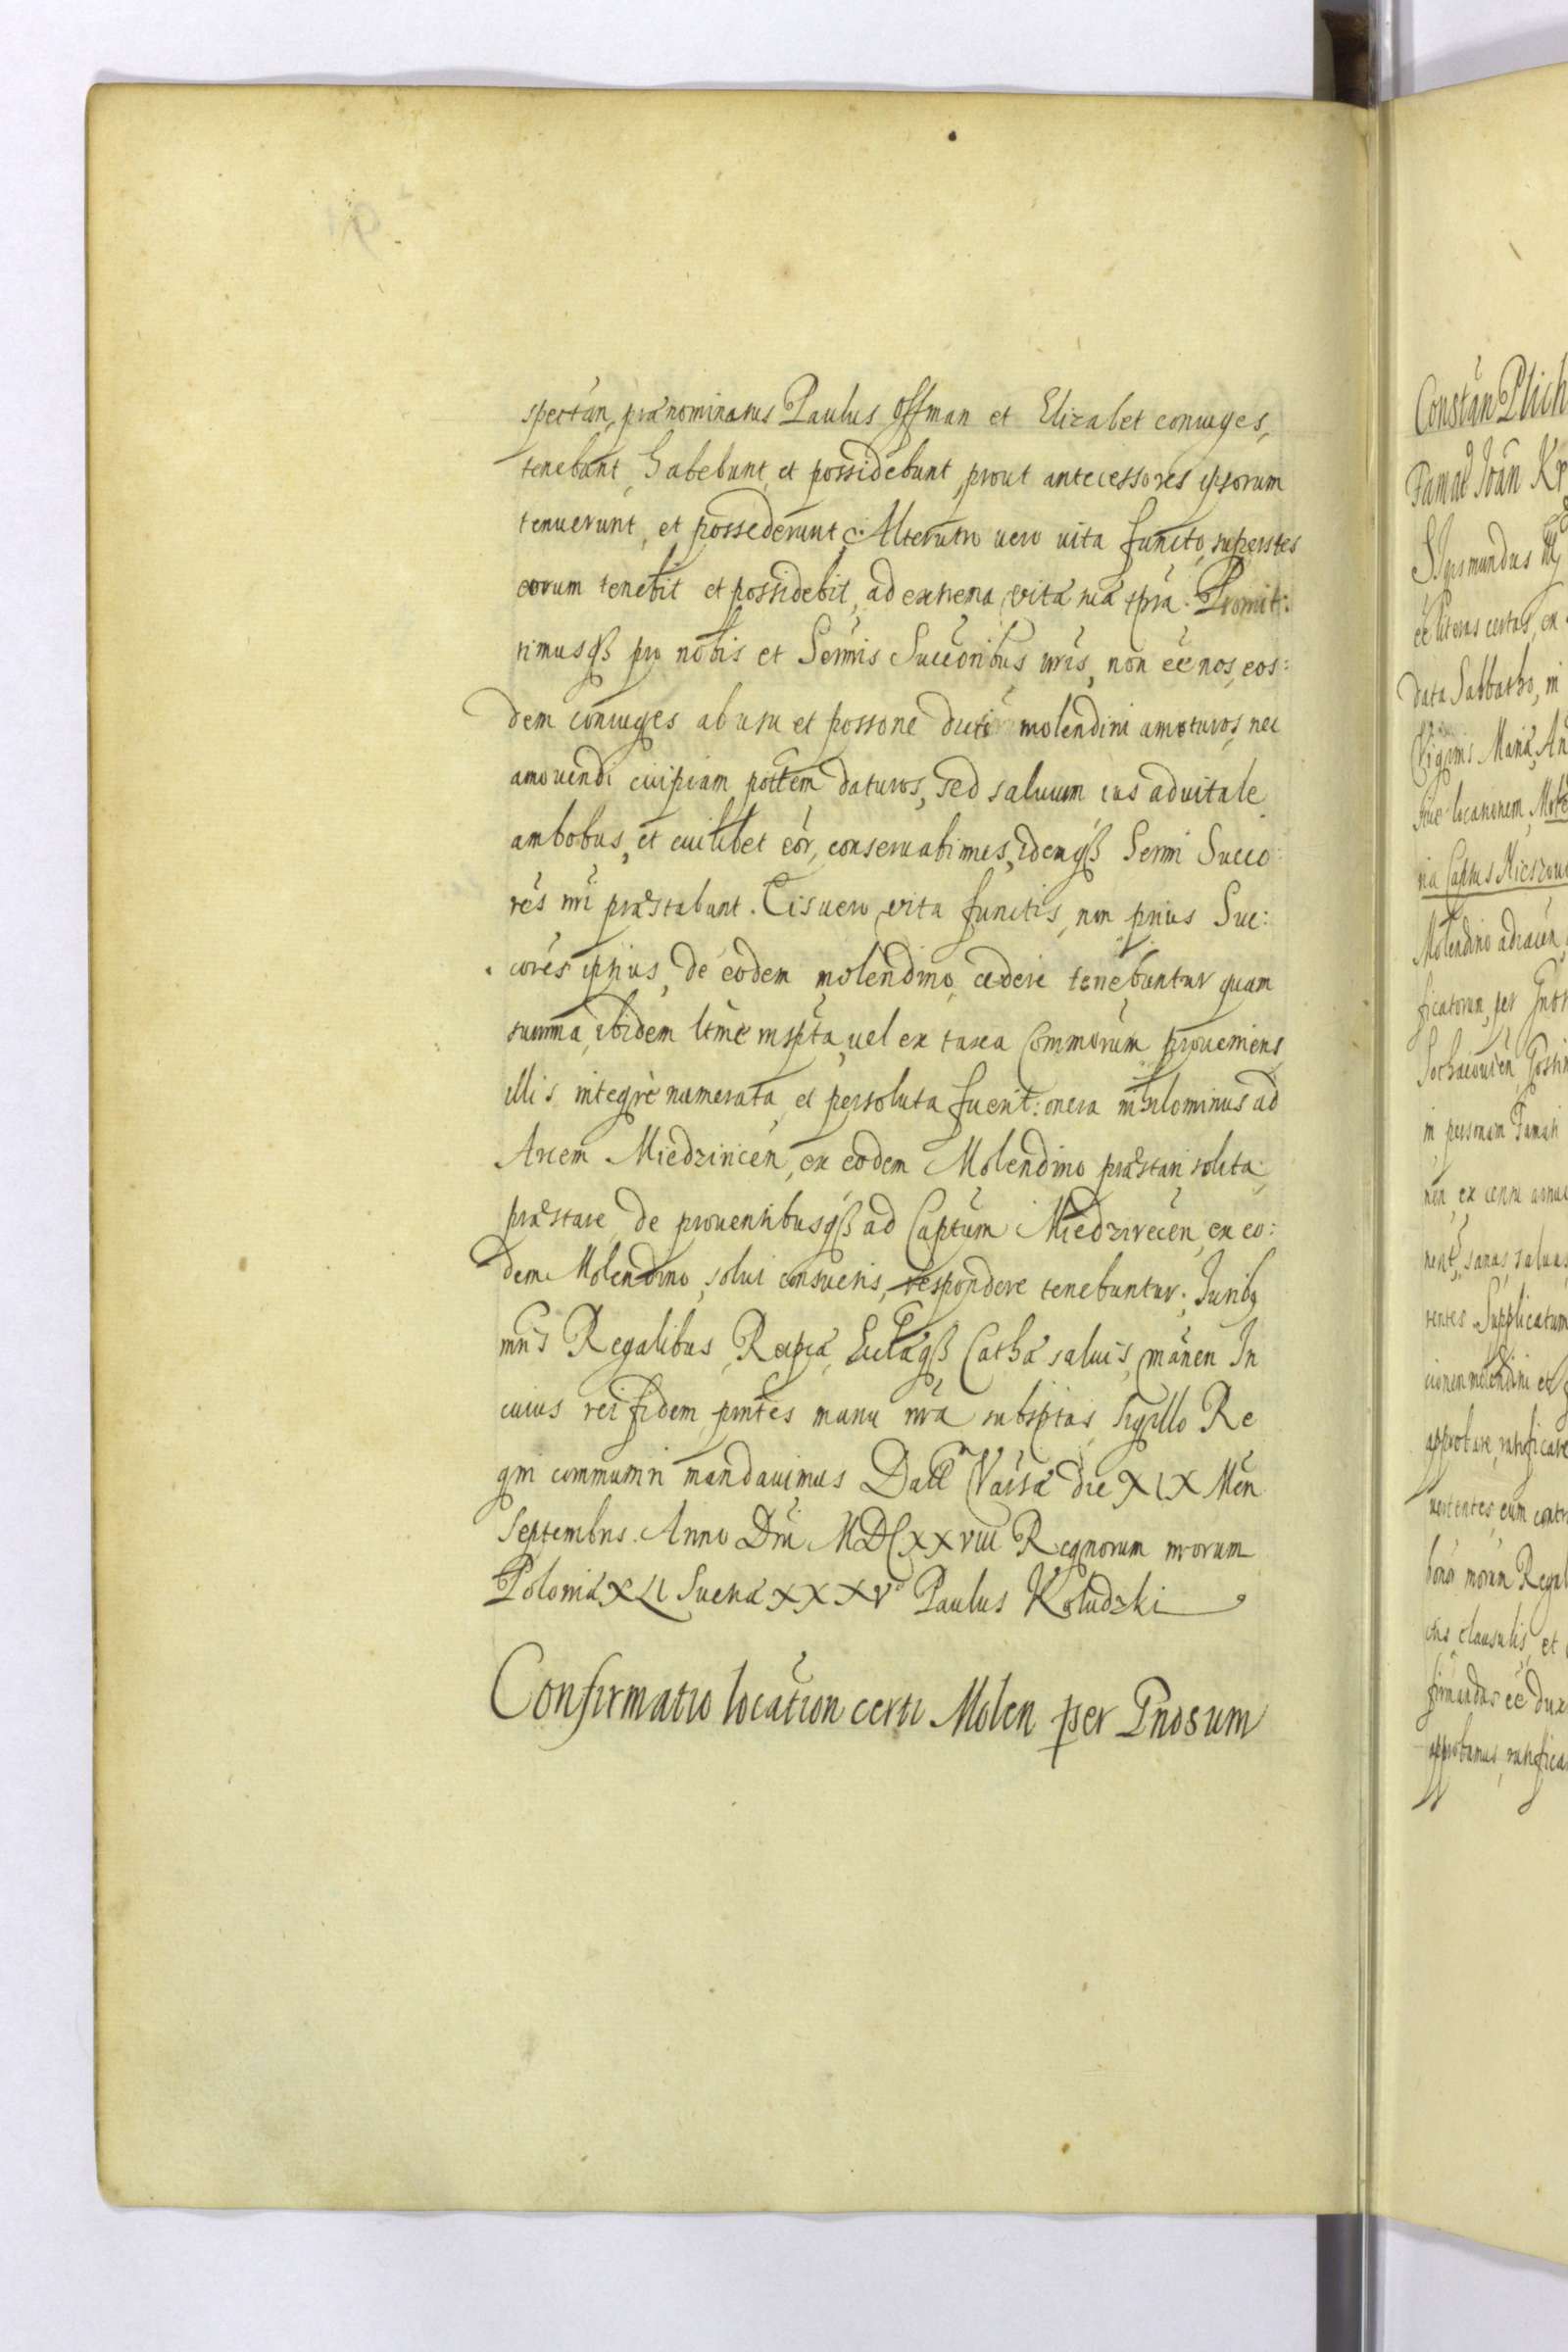 spectan, prænominatus Paulus Offman et Elizabet coniuges,
tenebunt, habebunt, et possidebunt, prout antecessores ipsorum
tenuerunt, et possederunt. Alterutro vero vita functo, superstes
eorum tenebit et possidebit, ad extrema vitæ suæ tpra. Promit:
timusqß pro nobis et Sermis Succoribus nris, non ee nos, eos:
dem coniuges ab usu et possone dicti molendini amoturos, nec
amovendi cuipiam pottem daturos, sed salvum ius advitale
ambobus, et cuilibet eor, conservabimus, idemqß Sermi Succo:
res nri præstabunt. Eis vero vita functis, non prius Suc:
cores ipsius, de eodem molendino cedere tenebuntur quam
summa, ibidem ltme inspta, vel ex taxa Commorum proveniens
illis integrè numerata, et persoluta fuerit: onera nihilominus ad
Arcem Miedziricen, ex eodem Molendino præstari solita
præstare, de proventibusqß ad Captum Miedzirecen, ex eo:
dem Molendino, solui consuetis, respondere tenebuntur. Juribq
nris Regalibus, Reipcæ, Ecclæqß Cathæ salvis, manen In
cuius rei fidem, pntes manu nra subsptas, sigillo Re
gni communiri mandavimus Datt Varsæ die XIX Men
Septembris. Anno Dni MDCXXVIII Regnorum nrorum
Poloniæ XLI Sueciæ XXXVo Paulus Kołudzki
Confirmatio location certi Molen per Gnosum
Constan Plich
Famat Joan Kr
Sigismundus III
ee literas certas, ex
data Sabbatho, in
Virginis Mariæ, An
sive locationem, Mole
Molendino adiacen
in personam Famati
nent, sanas, salvas
rentes Supplicatum
cionem molendini et
approbare, ratificare
clausulis, et
firmandas ee dux
approbamus, ratifica